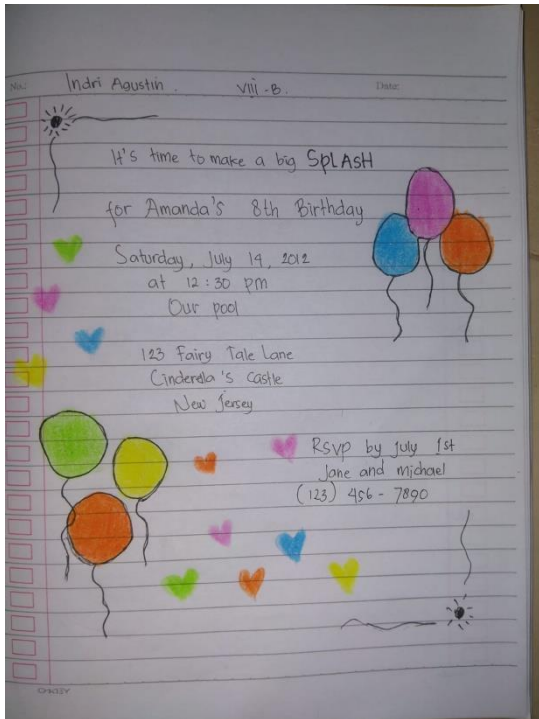 No: Indri Agustin VIII-B. Date:
It's time to make a big SpLASH
for Amanda's 8th Birthday
Saturday, July 14, 2012
at 12:30 pm
Our pool
123 Fairy Tale Lane
Cinderella's Castle
New Jersey
RSVP by July 1st
Jane and Michael
(123) 456-7890